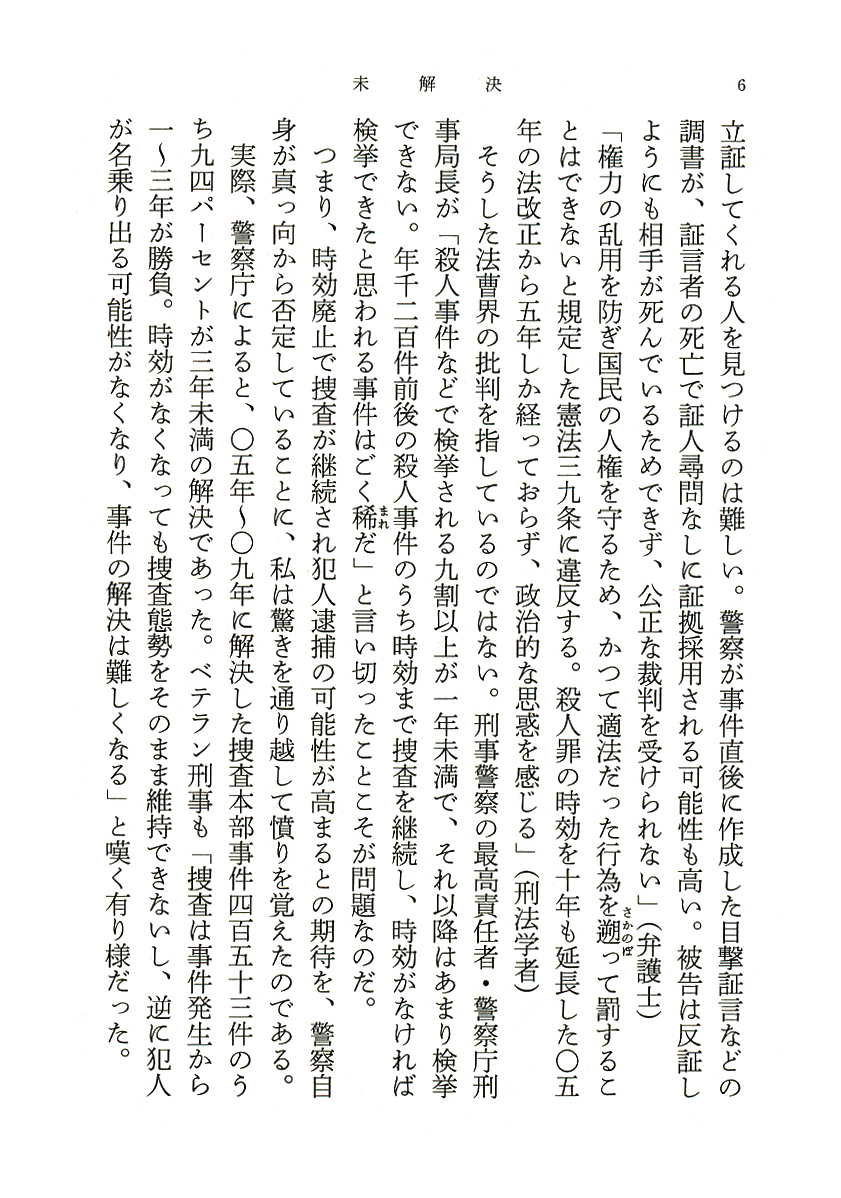 未解決
6
立証してくれる人を見つけるのは難しい。警察が事件直後に作成した目撃証言などの
調書が、証言者の死亡で証人尋問なしに証拠採用される可能性も高い。被告は反証し
ようにも相手が死んでいるためできず、公正な裁判を受けられない」（弁護士）
「権力の乱用を防ぎ国民の人権を守るため、かつて適法だった行為を遡って罰するこ
さかのぼ
とはできないと規定した憲法三九条に違反する。殺人罪の時効を十年も延長した〇五
年の法改正から五年しか経っておらず、政治的な思惑を感じる」（刑法学者）
そうした法曹界の批判を指しているのではない。刑事警察の最高責任者・警察庁刑
事局長が「殺人事件などで検挙される九割以上が一年未満で、それ以降はあまり検挙
できない。年千二百件前後の殺人事件のうち時効まで捜査を継続し、時効がなければ
検挙できたと思われる事件はごく稀だ」と言い切ったことこそが問題なのだ。
まれ
つまり、時効廃止で捜査が継続され犯人逮捕の可能性が高まるとの期待を、警察自
身が真っ向から否定していることに、私は驚きを通り越して憤りを覚えたのである。
実際、警察庁によると、〇五年～〇九年に解決した捜査本部事件四百五十三件のう
ち九四パーセントが三年未満の解決であった。ベテラン刑事も「捜査は事件発生から
一～三年が勝負。時効がなくなっても捜査態勢をそのまま維持できないし、逆に犯人
が名乗り出る可能性がなくなり、事件の解決は難しくなる」と嘆く有り様だった。